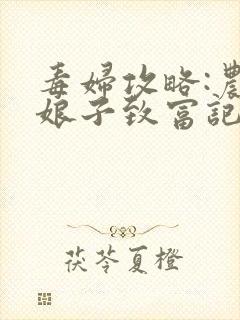 毒婦攻略:農
娘子致富記
茯苓夏橙